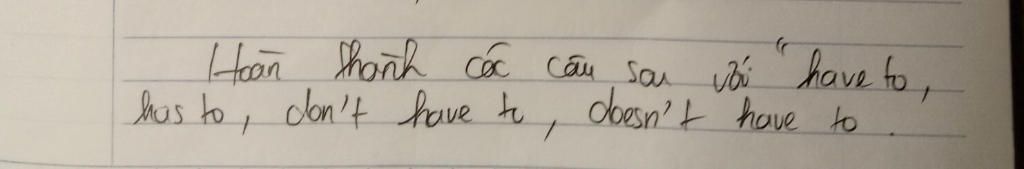 Hoàn thành các câu sau với "have to,
has to, don't have to, doesn't have to.